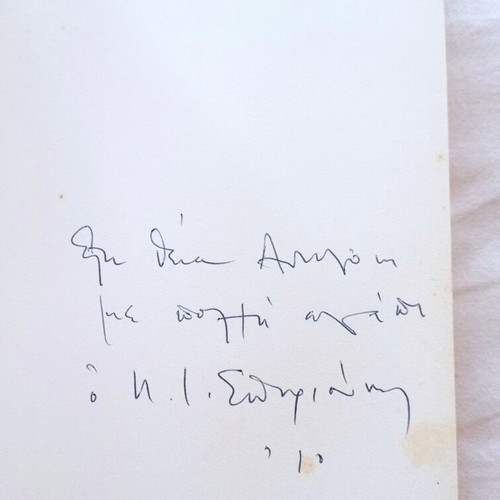 Στη θεία
με πολλή αγάπη
ὁ Π. Ι. Σωτηριάδης
'10